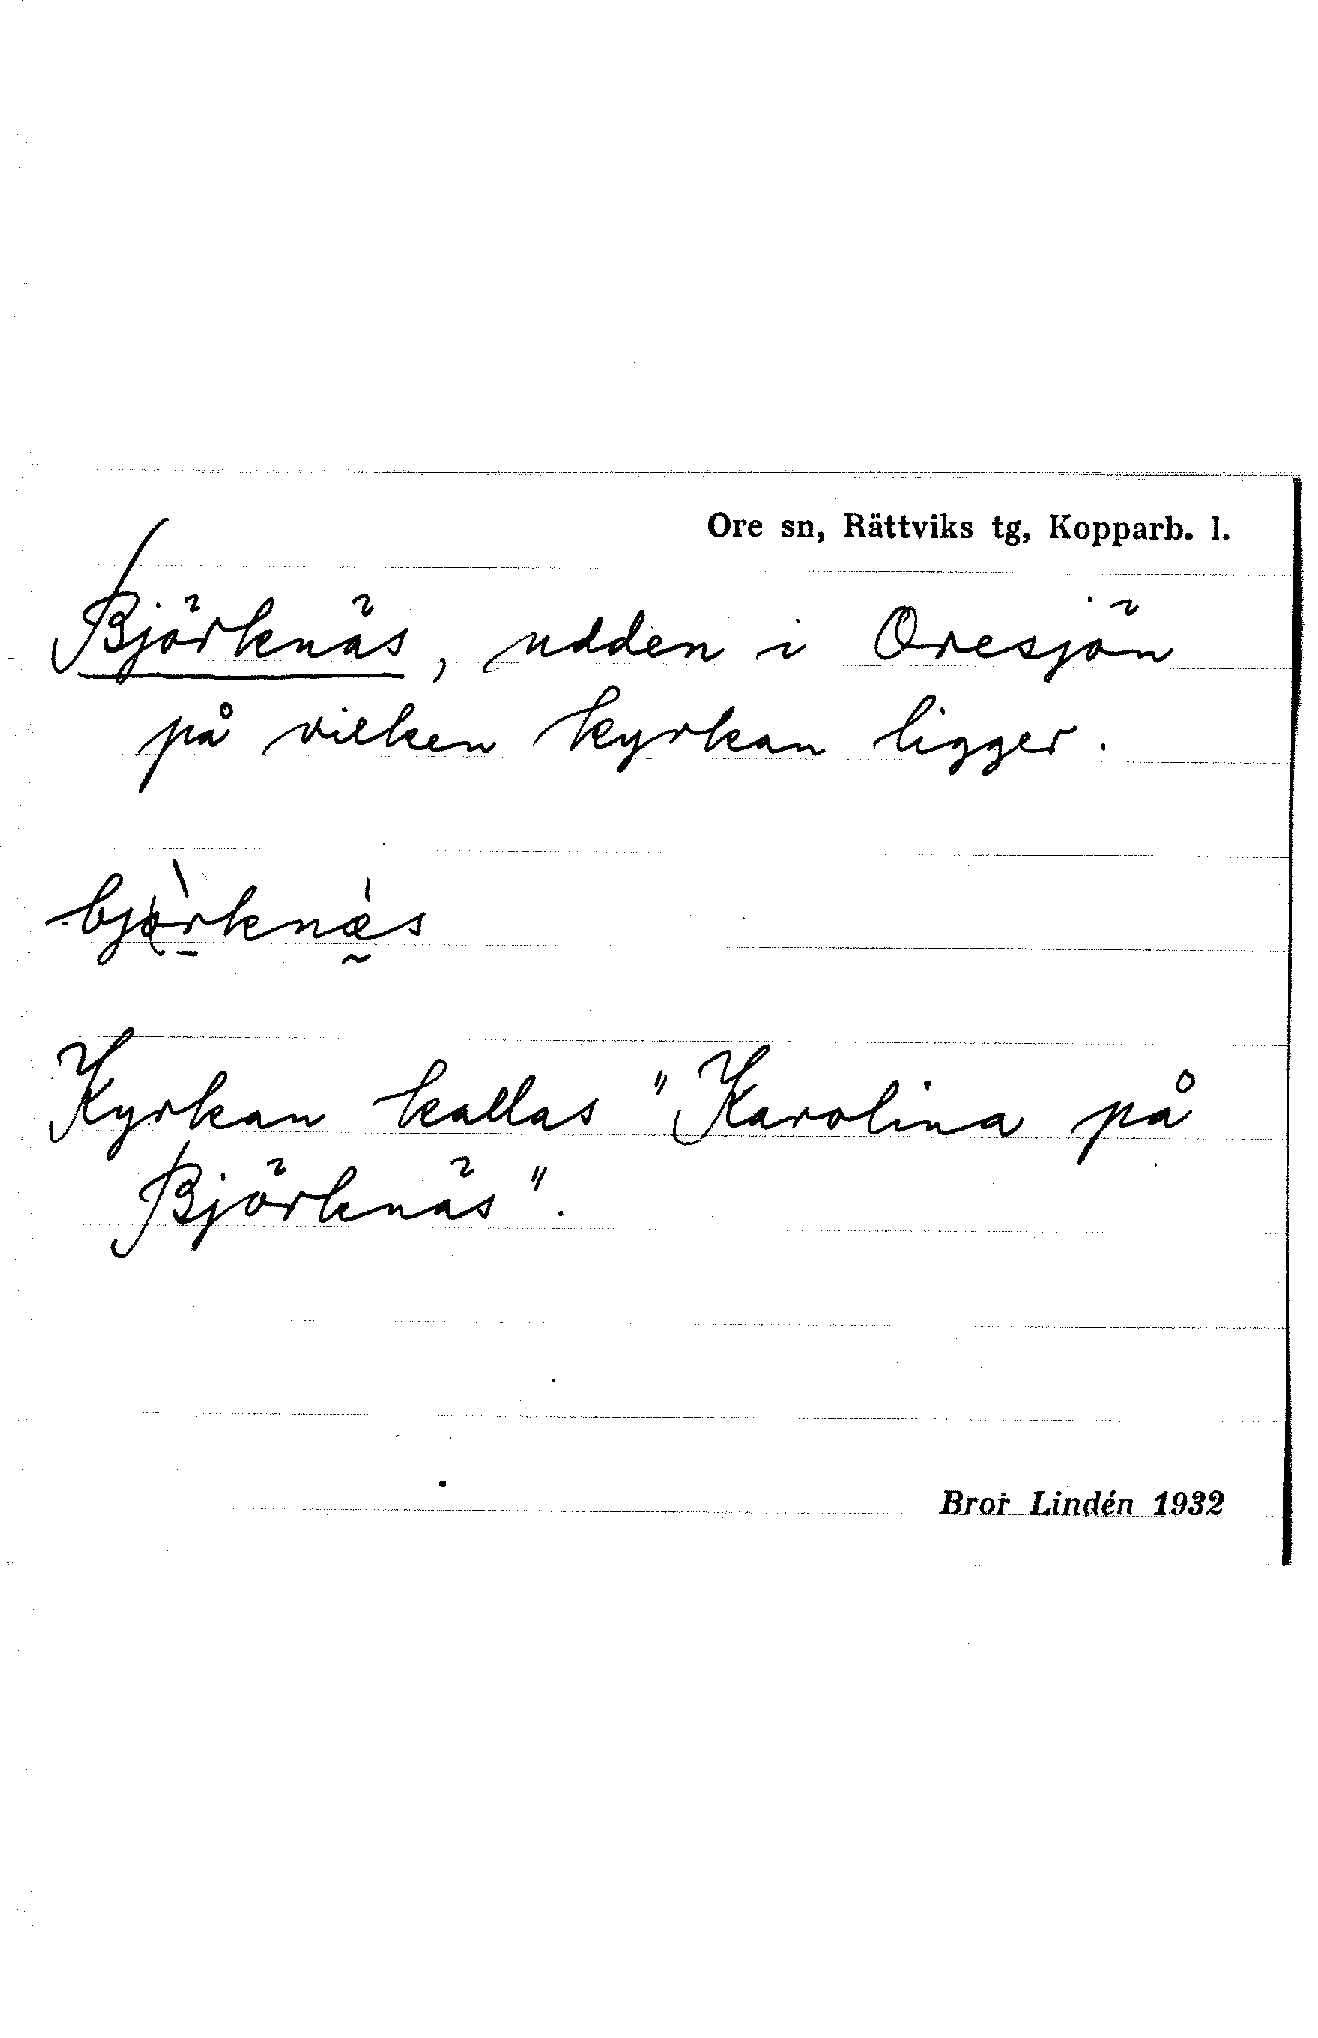 Ore sn, Rättviks tg, Kopparb. l.
Björknäs, udden i Oresjön
på vilken kyrkan ligger.
bjø̀rknǽ̰s
Kyrkan kallas "Karolina på
Björknäs".
Bror Lindén 1932